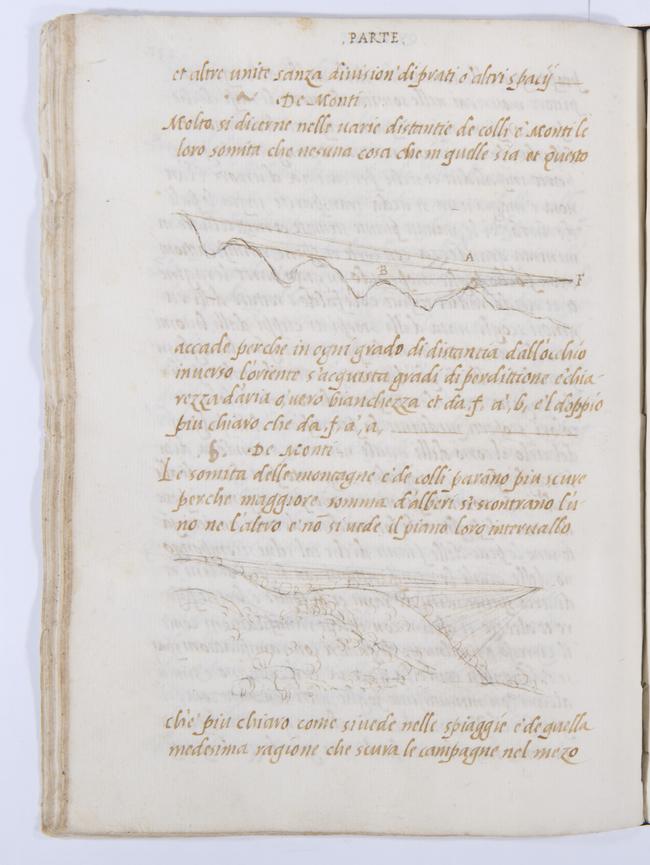 .PARTE.
et altre unite sanza division' di prati o' altri spacij
De Monti.
Molto si dicerne nelle varie distantie de colli e' Monti le
loro somita che nesuna cosa che in quelle sia et questo
A
B
F
accade perche in ogni grado di distancia dall'occhio
inverso l'oriente s'acquista gradi di perdittione e' chia-
rezza d'aria o' vero bianchezza et da, f, a', b, e'l doppio
piu chiaro che da, f, a', a,
De Monti
Le somita delle montagne e' de colli parano piu scure
perche maggiore somma d'alberi si scontrano l'u-
no ne l'altro e' nõ si vede il piano loro intervallo
che piu chiaro come si vede nelle spiaggie e' de quella
medesima ragione che scura le campagne nel mezo